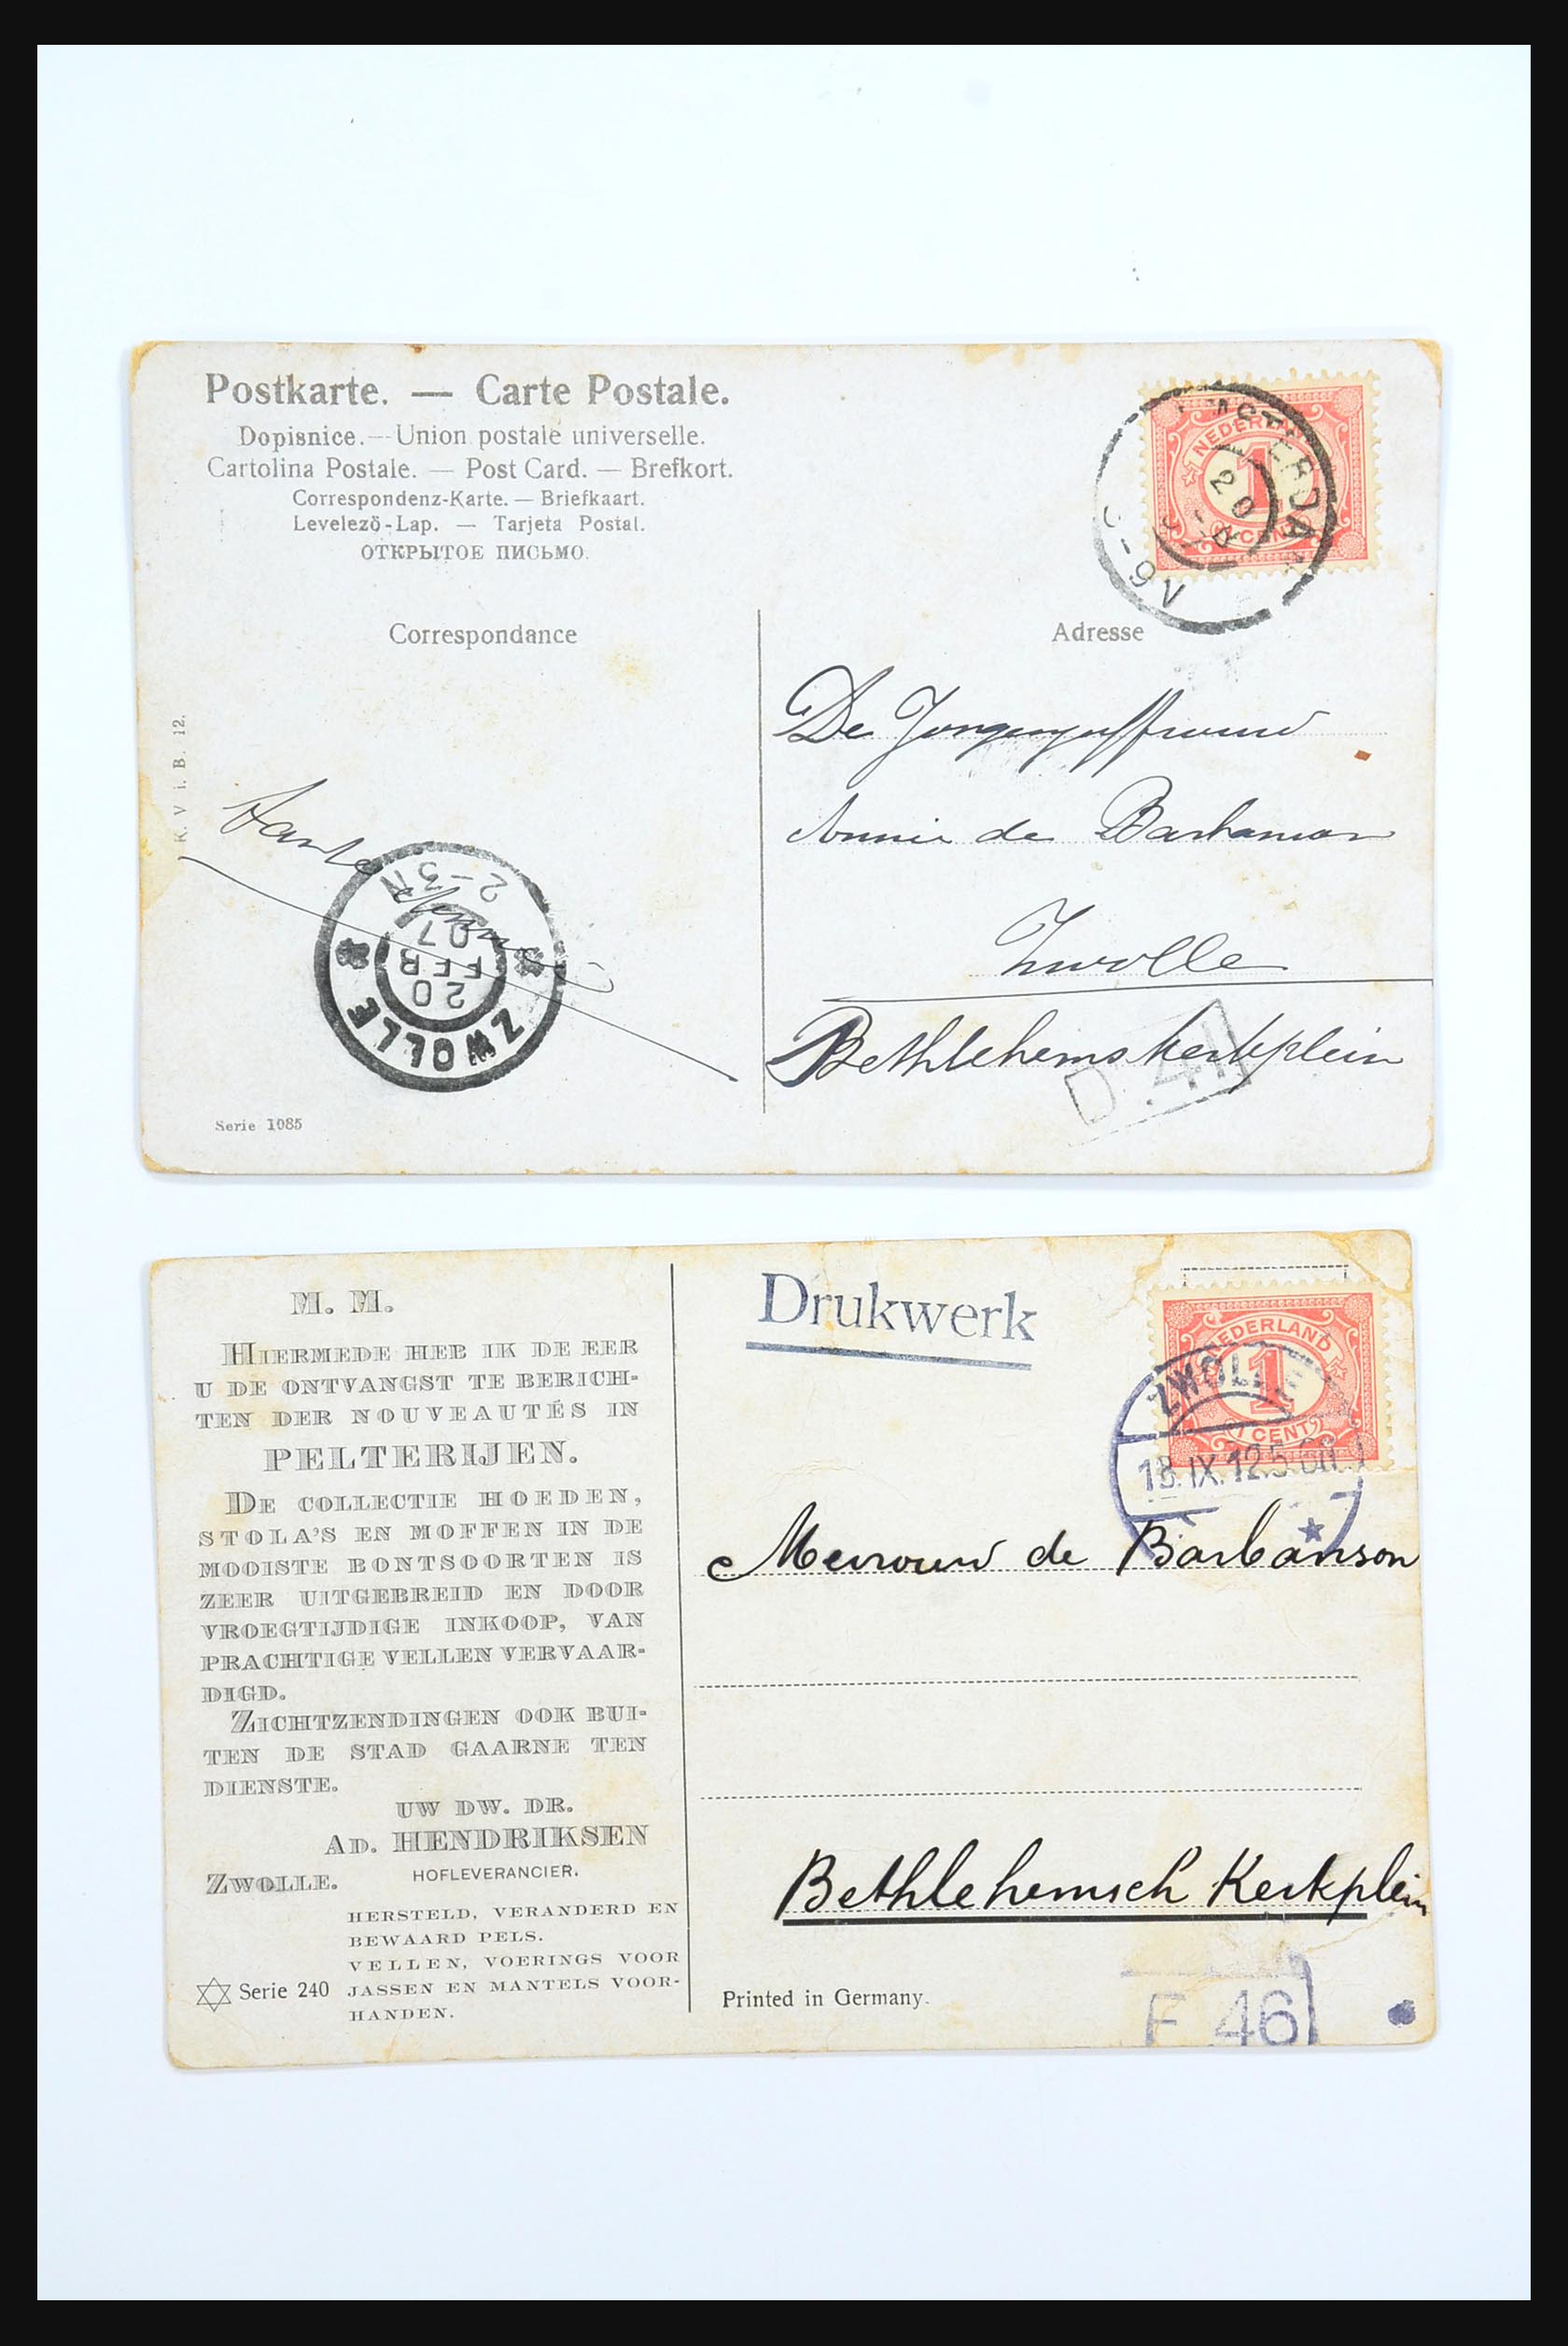 Postkarte. — Carte Postale.
Dopisnice. — Union postale universelle.
Cartolina Postale. — Post Card. — Brefkort.
Correspondenz-Karte. — Briefkaart.
Levelező-Lap. — Tarjeta Postal.
ОТКРЫТОЕ ПИСЬМО.
NEDERLAND
1
CENT
AMSTERDAM
20
Correspondance
Adresse
K. V i. B. 12.
De Jongejuffrouw
Annie de Barbanson
Zwolle
Bethlehemskerkplein
D 41
Tante
ZWOLLE
20
FEB
07
2-3N
Serie 1085
M. M.
HIERMEDE HEB IK DE EER
U DE ONTVANGST TE BERICH-
TEN DER NOUVEAUTÉS IN
PELTERIJEN.
DE COLLECTIE HOEDEN,
STOLA'S EN MOFFEN IN DE
MOOISTE BONTSOORTEN IS
ZEER UITGEBREID EN DOOR
VROEGTIJDIGE INKOOP, VAN
PRACHTIGE VELLEN VERVAAR-
DIGD.
ZICHTZENDINGEN OOK BUI-
TEN DE STAD GAARNE TEN
DIENSTE.
UW DW. DR.
AD. HENDRIKSEN
HOFLEVERANCIER.
ZWOLLE.
HERSTELD, VERANDERD EN
BEWAARD PELS.
VELLEN, VOERINGS VOOR
JASSEN EN MANTELS VOOR-
HANDEN.
Serie 240
Drukwerk
NEDERLAND
1
1 CENT
ZWOLLE
18.IX.12
Mevrouw de Barbanson
Bethlehemsch Kerkplein
Printed in Germany.
F 46